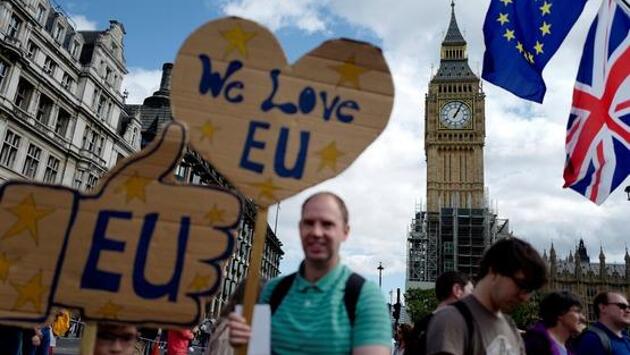 We Love
EU
EU